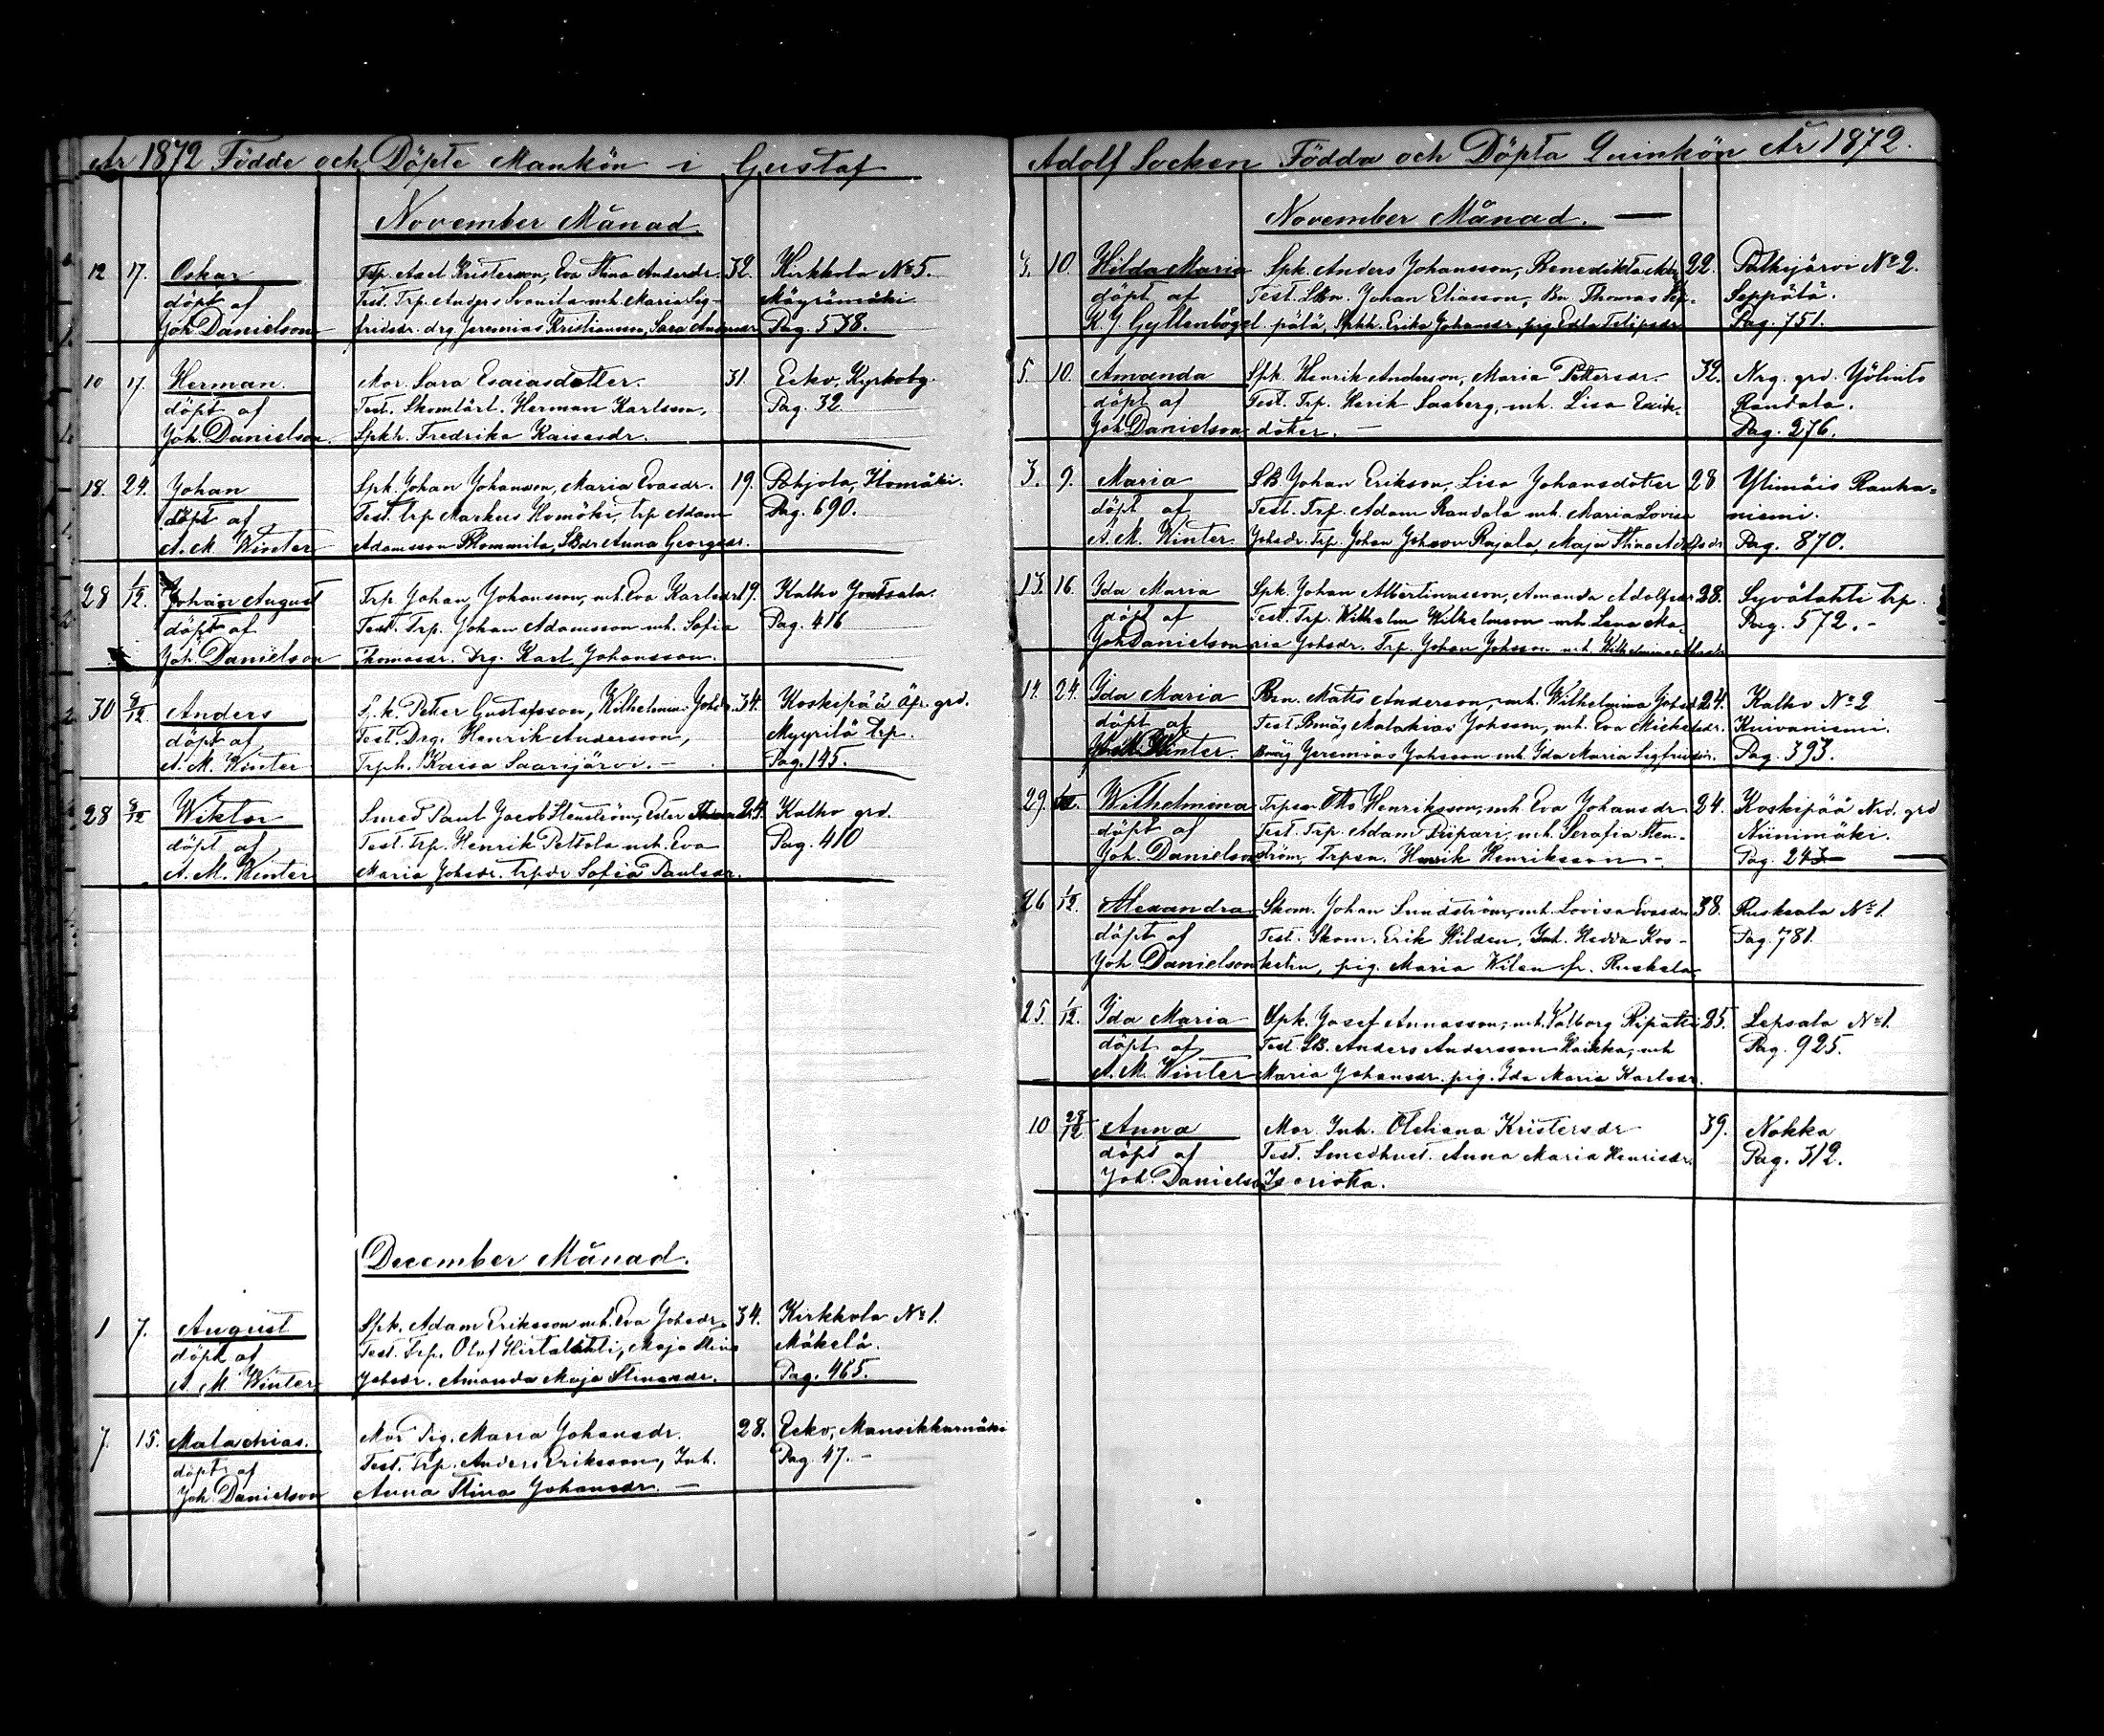 År 1872 Födde och Döpte Mankön i Gustaf
November Månad.
12 17. Oskar Trp. Axel Kristersson, Eva Stina Andersdr. 32. Kirkkola No 5.
döpt af Test. Trp. Anders Sconila mh. Maria Sig- Mäyrämäki
Joh. Danielson fridsdr. drg Jeremias Kristiansson, Sara Andersdr. Pag. 538.
10 17. Herman. Mor. Sara Esaiasdotter. 31. Ecko, Kyrkobg.
döpt af Test. Skomlärl. Herman Karlsson, Pag. 32.
Joh. Danielson. Spkh. Fredrika Kaisasdr.
18. 24. Johan Spk. Johan Johansson, Maria Evasdr. 19. Pohjola, Homäki.
döpt af Test. trp Markus Homäki, trp Adam Pag. 690.
A. M. Winter Adamsson Skommila, SBdr Anna Georgsdr.
28 1/12. Johan August Trp. Johan Johansson, mh. Eva Karlsdr. 19. Kalho Joutsala.
döpt af Test. Trp. Johan Adamsson mh. Sofia Pag. 416
Joh. Danielson Thomasdr. Drg. Karl Johansson.
30 8/12 Anders Spk. Petter Gustafsson, Wilhelmina Johsdr. 34. Koskipää Öfr. grd.
döpt af Test. Drg. Henrik Andersson, Myyrilä Trp.
A. M. Winter Trph. Kaisa Saarijärvi. – Pag. 145.
28 8/12 Wiktor Smed Paul Jacob Stenström, Ester 24. Kalho grd.
döpt af Test. Trp. Henrik Pettola mh. Eva Pag. 410
A. M. Winter Maria Johsdr. trpdr Sofia Paulsdr.
December Månad.
1 7. August Spk. Adam Eriksson mh. Eva Johsdr. 34. Kirkkola No 1.
döpt af Test. Trp. Olof Hirtalahti, Maja Stina Mäkelä.
A. M. Winter Johsdr. Amanda Maja Stinasdr. Pag. 465.
7. 15. Malachias. Mor Pig. Maria Johansdr. 28. Ecko, Mansikkamäki
döpt af Test. Trp. Anders Eriksson, Inh. Pag. 47. –
Joh. Danielson Anna Stina Johansdr. –
Adolf Socken Födda och Döpta Quinkön År 1872.
November Månad. —
3. 10. Hilda Maria Spk. Anders Johansson, Benedikta 22. Palkijärvi No 2.
döpt af Test. SBn. Johan Eliasson, Bn. Thomas Sep- Seppälä.
K. J. Gyllenbögel. pälä, Spkh. Erika Johansdr. pig Edla Filipsdr. Pag. 751.
5. 10. Amanda Spk. Henrik Andersson, Maria Pettersdr. 32. Nrg. grd. Yölinto
döpt af Test. Trp. Herik Saaberg, mh. Lisa Erik- Randala.
Joh Danielson doter. – Pag. 276.
3. 9. Maria SB. Johan Erikson, Lisa Johansdotter 28 Ylimäis Rauha-
döpt af Test. Trp. Adam Randala mh. Maria Lovisa niemi.
A. M. Winter. Johsdr. Trp. Johan Johsson Rajala, Maja Stina Adolfsdr. Pag. 870.
13. 16. Ida Maria Spk. Johan Albertinasson, Amanda Adolfsdr 28. Syvälahti trp.
döpt af Test. Trp. Wilhelm Wilhelmson mh Lena Ma- Pag. 572. –
Joh Danielson ria Johsdr. Trp. Johan Johsson mh. Wilhelmina
14. 24. Ida Maria Bn. Matts Anderson, mh. Wilhelmina Johsdr 24. Kalho No 2
döpt af Test. Bmåg Malakias Johsson, mh. Eva Michelsdr. Kuivaniemi.
Winter. Bmåg Jeremias Johsson mh. Ida Maria Sigfridsdr. Pag. 393.
29. Wilhelmina Trpsn Otto Henriksson, mh. Eva Johansdr. 24. Koskipää Nrd. grd
döpt af Test. Trp. Adam Pripari, mh. Serafia Sten- Niinimäki.
Joh. Danielson ström, Trpsn. Henrik Henriksson – Pag. 243 —
26 1/12. Alexandra Skom. Johan Sundström, mh. Lovisa Evasdr. 38. Ruskala No 1.
döpt af Test. Skom. Erik Hilden, Inh. Hedda Kos- Pag. 781.
Joh Danielson kelin, pig. Maria Wilen fr. Ruskala
25. 1/12. Ida Maria Spk. Josef Annasson, mh. Valborg Ripatti 25. Lepsala No 1.
döpt af Test. SB. Anders Andersson Haikka, mh Pag. 925.
A. M. Winter Maria Johansdr. pig. Ida Maria Karlsdr.
10 28/12 Anna Mor Inh. Otteliana Kristersdr 39. Nokka
döpt af Test. Smedhust. Anna Maria Henrisdr. Pag. 312.
Joh. Danielson